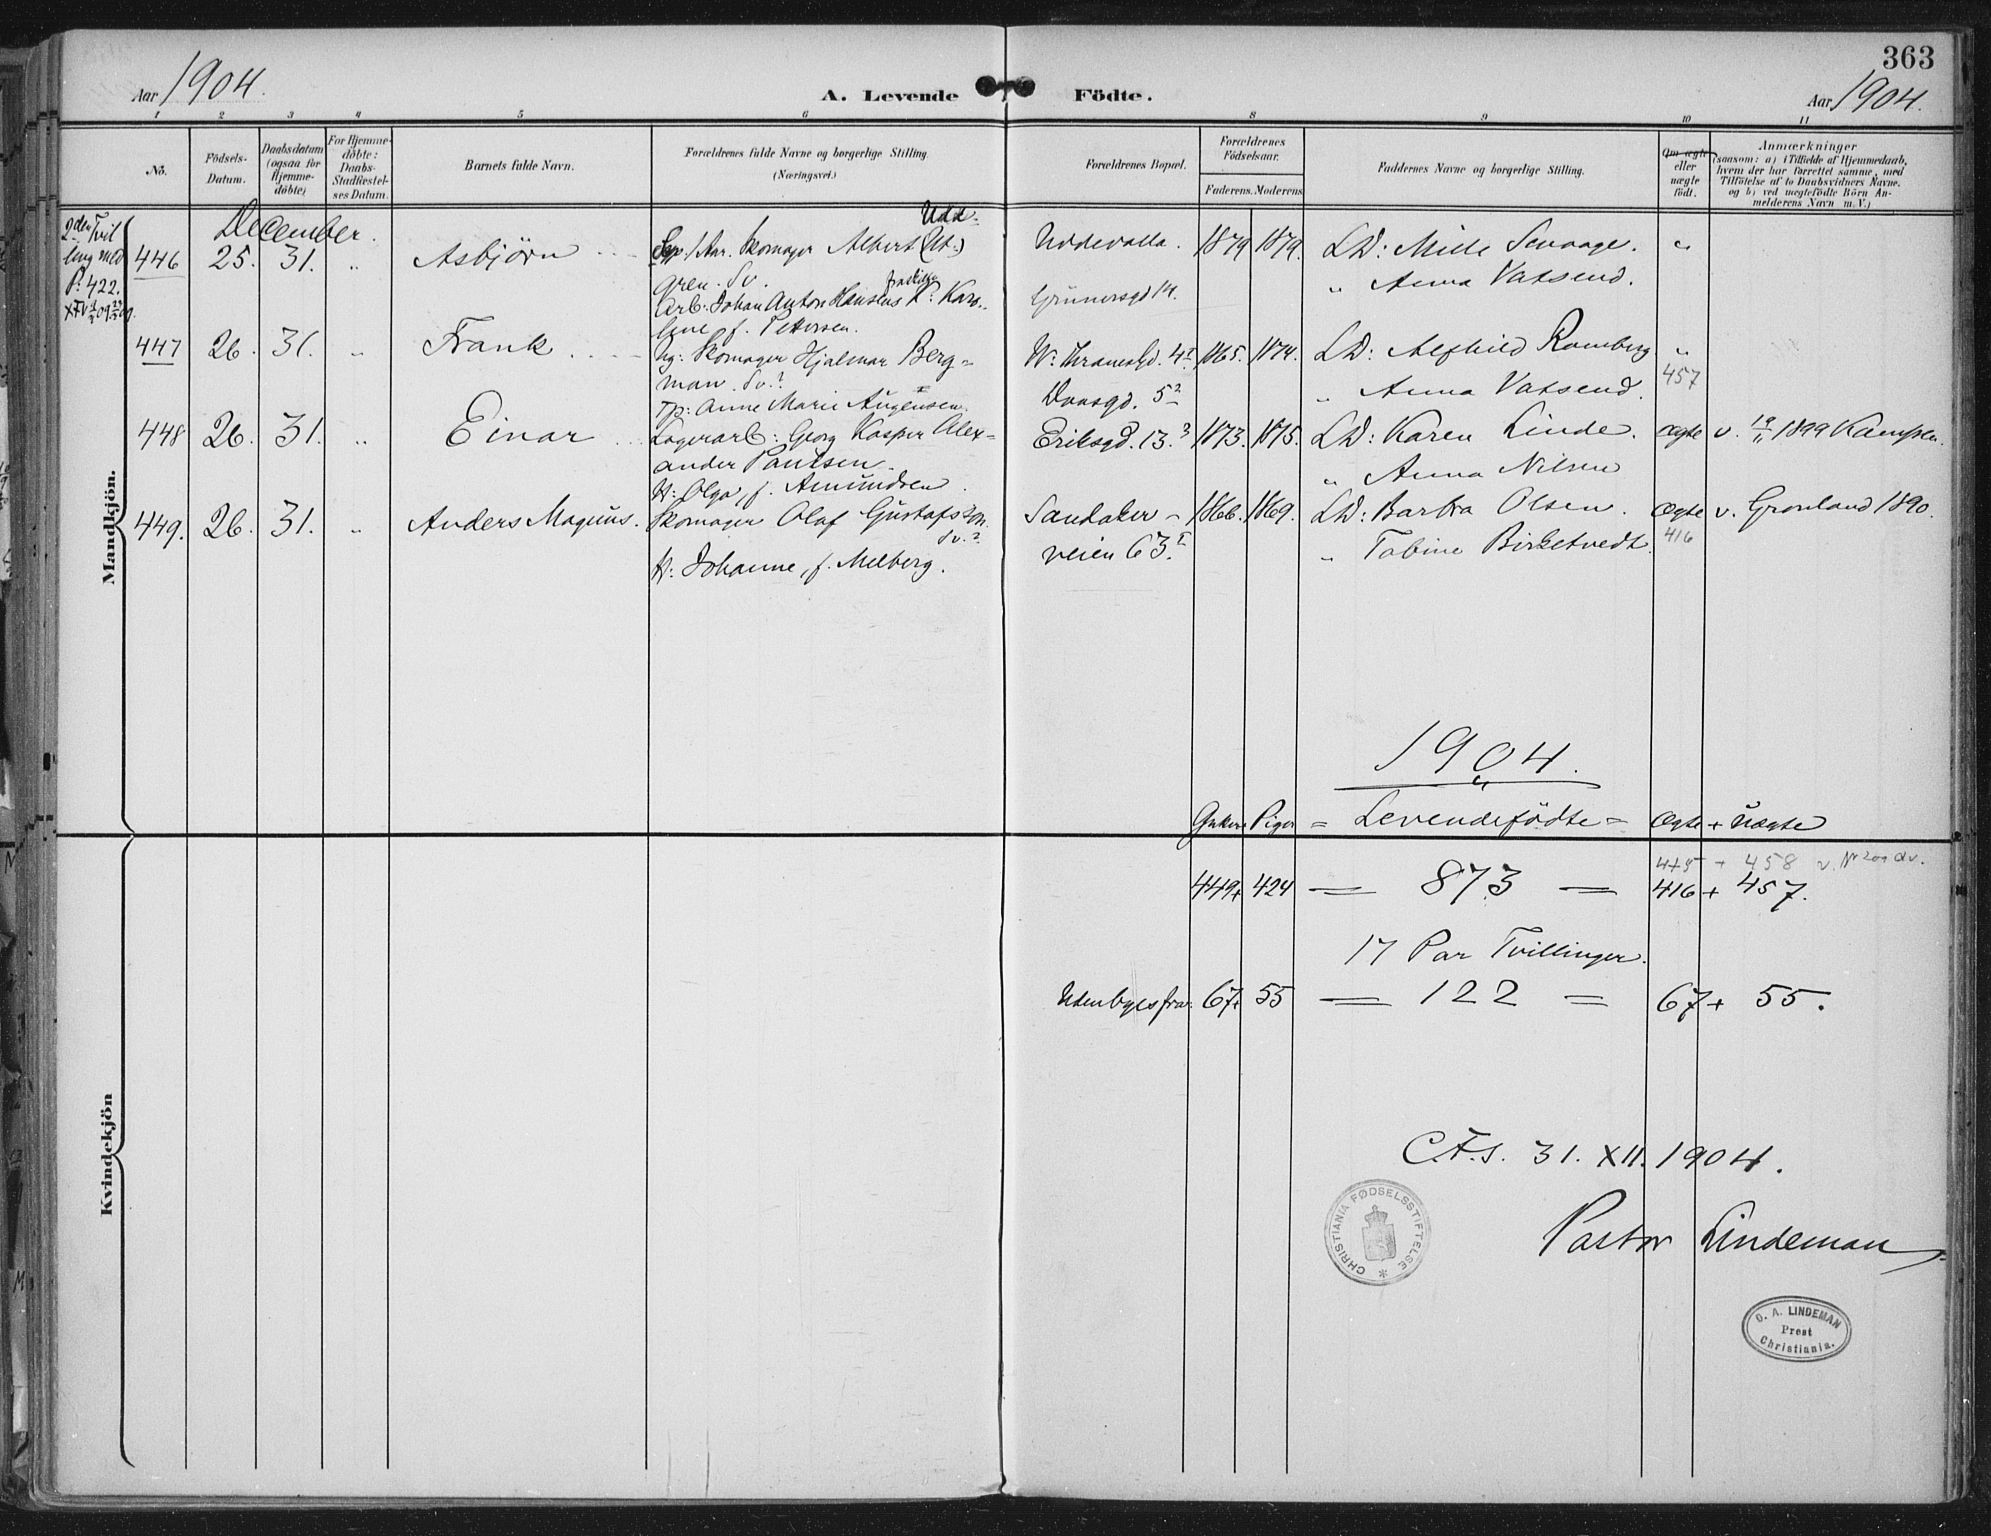 363
Aar 1904.
A. Levende Födte.
Aar 1904.
1 2 3 4 5 6 8 9 10 11
No.
Födsels-
Datum.
Daabsdatum
(ogsaa for
Hjemme-
döbte)
For Hjemme-
döbte:
Daabs-
Stadfæstel-
ses Datum.
Barnets fulde Navn.
Forældrenes fulde Navne og borgerlige Stilling
(Næringsvei.)
Forældrenes Bopæl.
Forældrenes
Födselsaar.
Faderens. Moderens
Faddernes Navne og borgerlige Stilling.
Om ægte
eller
uægte
födt.
Anmærkninger
(saasom: a) i Tilfælde af Hjemmedaab,
hvem der har forrettet samme, med
Tilföielse af to Daabsvidners Navne.
og b) ved uægtefödte Börn An-
melderens Navn m. V.)
Mandkjön.
December.
2den Tvil
ling med
P. 422.
446 25. 31. „ Asbjörn
Skomager Albert
gren. Sv.
Arb. Johan Anton Hansens
line, f. Pettersen.
Uddevalla. 1879 1879.
Grünersgd 14.
LD: Mille Sevaage. „
„ Anna Vatsend.
447 26. 31. „ Frank
Ug: Skomager Hjalmar Berg-
man. Sv.?
Tp: Anne Marie Augensen.
W. Thranesgd. 4 I 1865. 1874.
5 2
LD: Alfhild Romberg „
„ Anna Vatsend. 457
448 26. 31. „ Einar
Lagerarb: Georg Kasper Alex-
ander Paulsen.
H: Olga, f. Amundsen.
Eriksgd. 13. 3 1873. 1875.
LD: Karen Linde. ægte v. 1899 Kampen.
„ Anna Nilsen
449. 26. 31. „ Anders Magnus.
Skomager Olaf Gustafsson.
Sv.?
H: Johanne, f. Melberg.
Sandaker- 1866. 1869.
veien 63. I
LD: Barbra Olsen. ægte v. Grönland 1890.
„ Tobine Birketvedt. 416
1904.
Piger = Levendefödte = ægte + uægte
+ 458
449 + 424 = 873 = 416 + 457.
17 Par Tvillinger.
Udenbyesfra: 67 + 55 = 122 = 67 + 55.
Kvindekjön
C.F.S. 31. XII. 1904.
CHRISTIANIA FØDSELSSTIFTELSE
Pastor Lindeman
O. A. LINDEMAN
Prest
Christiania.